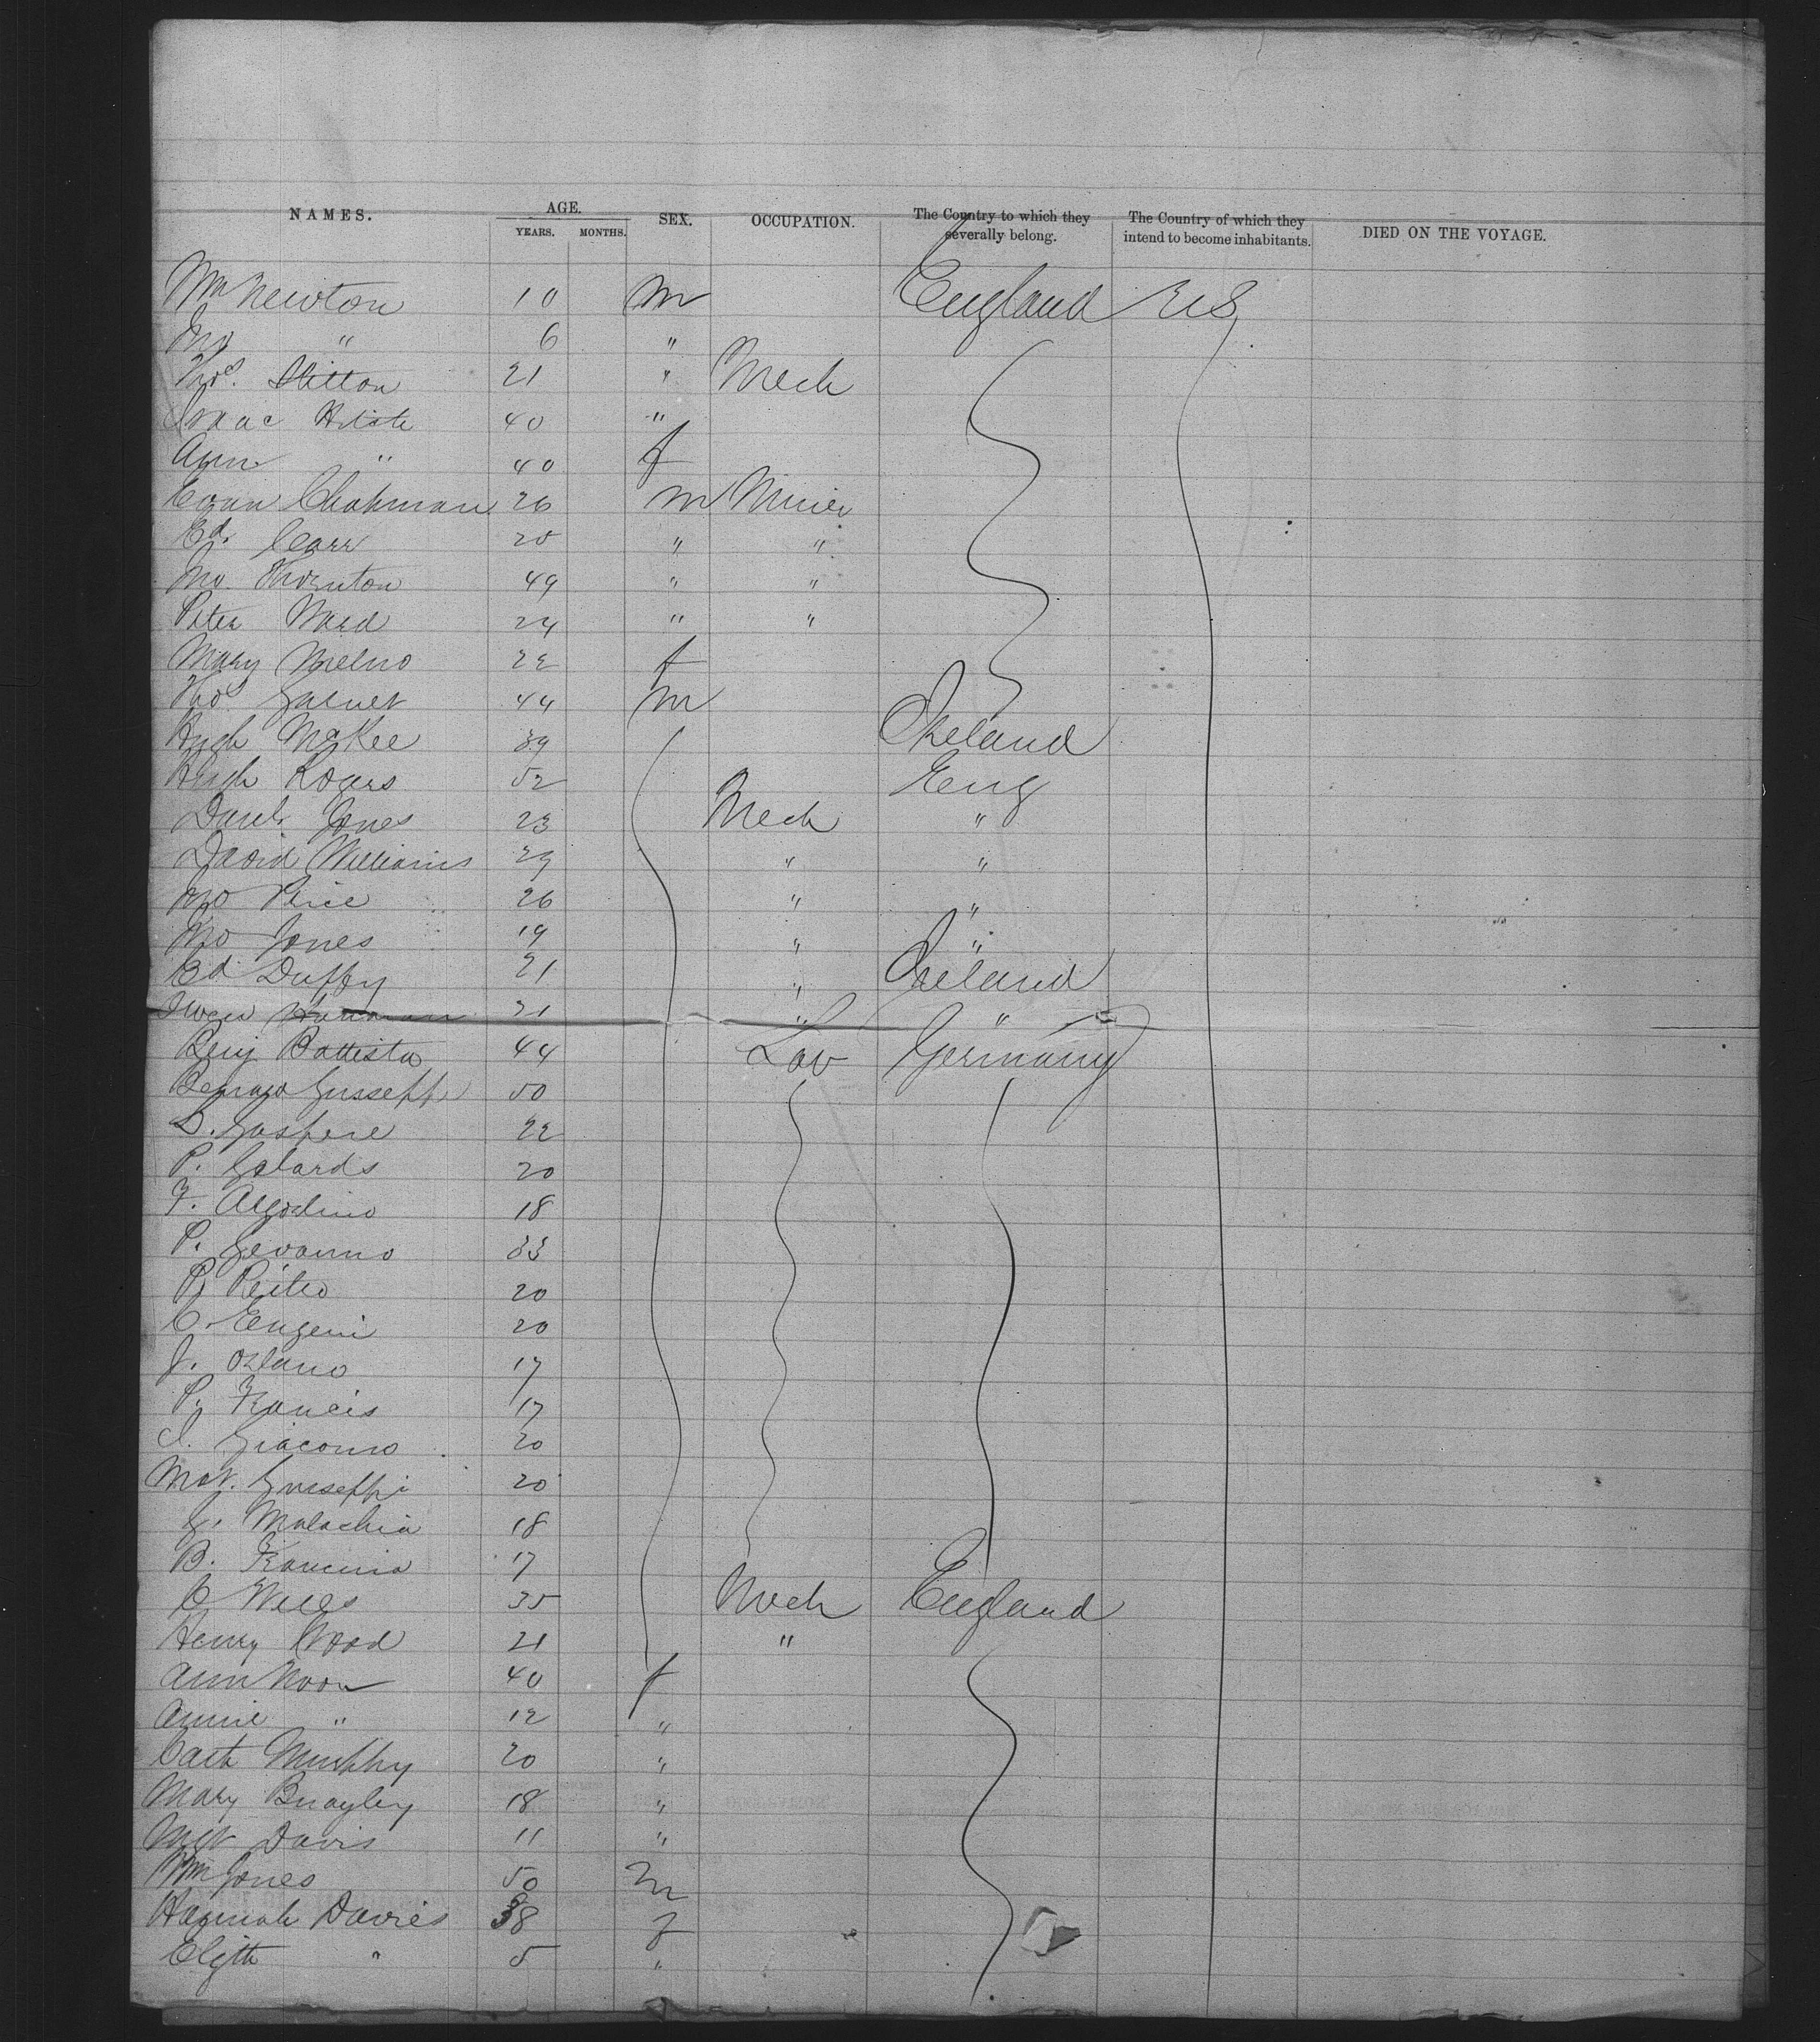 NAMES. AGE. YEARS. MONTHS. SEX. OCCUPATION. The Country to which they severally belong. The Country of which they intend to become inhabitants. DIED ON THE VOYAGE.
Wm Newton 10 m England U S
Jno " 6 "
Thos. Hilton 21 " Mech
Isaac 40 "
Ann " 40 f
Evan Chapman 26 m Miner
Ed. Carr 25 " "
Jno. Thornton 49 " "
Peter Ward 24 " "
Mary 22 f
Thos Garnet 44 m
Hugh McKee 39 Ireland
Hugh Rogers 52 Eng
Danl. Jones 23 Mech "
David Williams 29 " "
Jno Price 26 " "
Jno Jones 19 " "
Ed Duffy 21 " Ireland
Owen 21 " "
Benj Battista 44 Lab Germany
Gusseppi 50
D. Gaspere 22
P. Golards 20
F. Algostino 18
P. Gevanno 33
P. Peitro 20
C. Eugeni 20
J. Orlano 17
P. Francis 17
J. Giacomo 20
Mat. Guiseppi 20
G. Malachia 18
B. 17
C Wells 35 Mech England
Henry Wood 21 "
Ann Noon 40 f
Annie " 12 "
Cath Murphy 20 "
Mary Brayley 18 "
Mgt Davis 11 "
Wm Jones 50 m
Hannah Davies 38 f
Elizth " 5 "